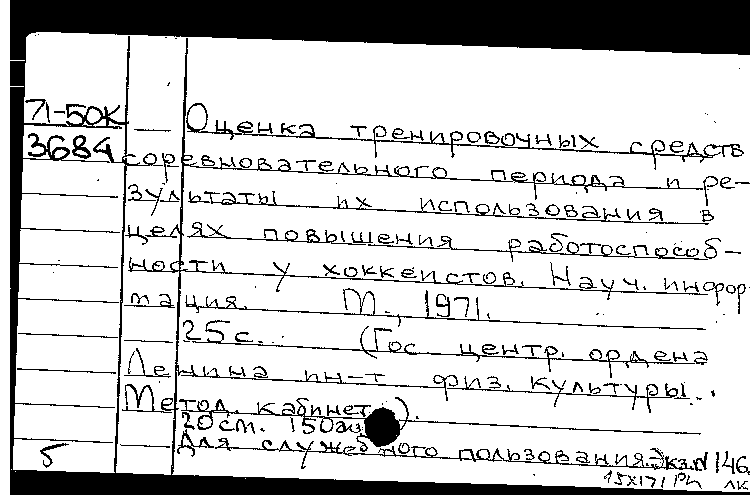 71-50К
3684
Оценка тренировочных средств
соревновательного периода и ре-
зультаты их использования в
целях повышения работоспособ-
ности у хоккеистов. Науч. инфор-
мация. М., 1971.
25 с. (Гос. центр. ордена
Ленина ин-т физ. культуры.
Метод. кабинет).
20 см. 150 экз.
Для служебного пользования. Экз. N 146.
5